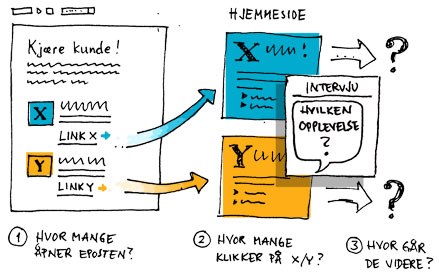 Kjære kunde!
X
LINK X
Y
LINK Y
HJEMMESIDE
X
!
?
INTERVJU
HVILKEN
OPPLEVELSE
?
Y
?
1 HVOR MANGE
ÅPNER EPOSTEN?
2 HVOR MANGE
KLIKKER PÅ X/Y?
3 HVOR GÅR
DE VIDERE?